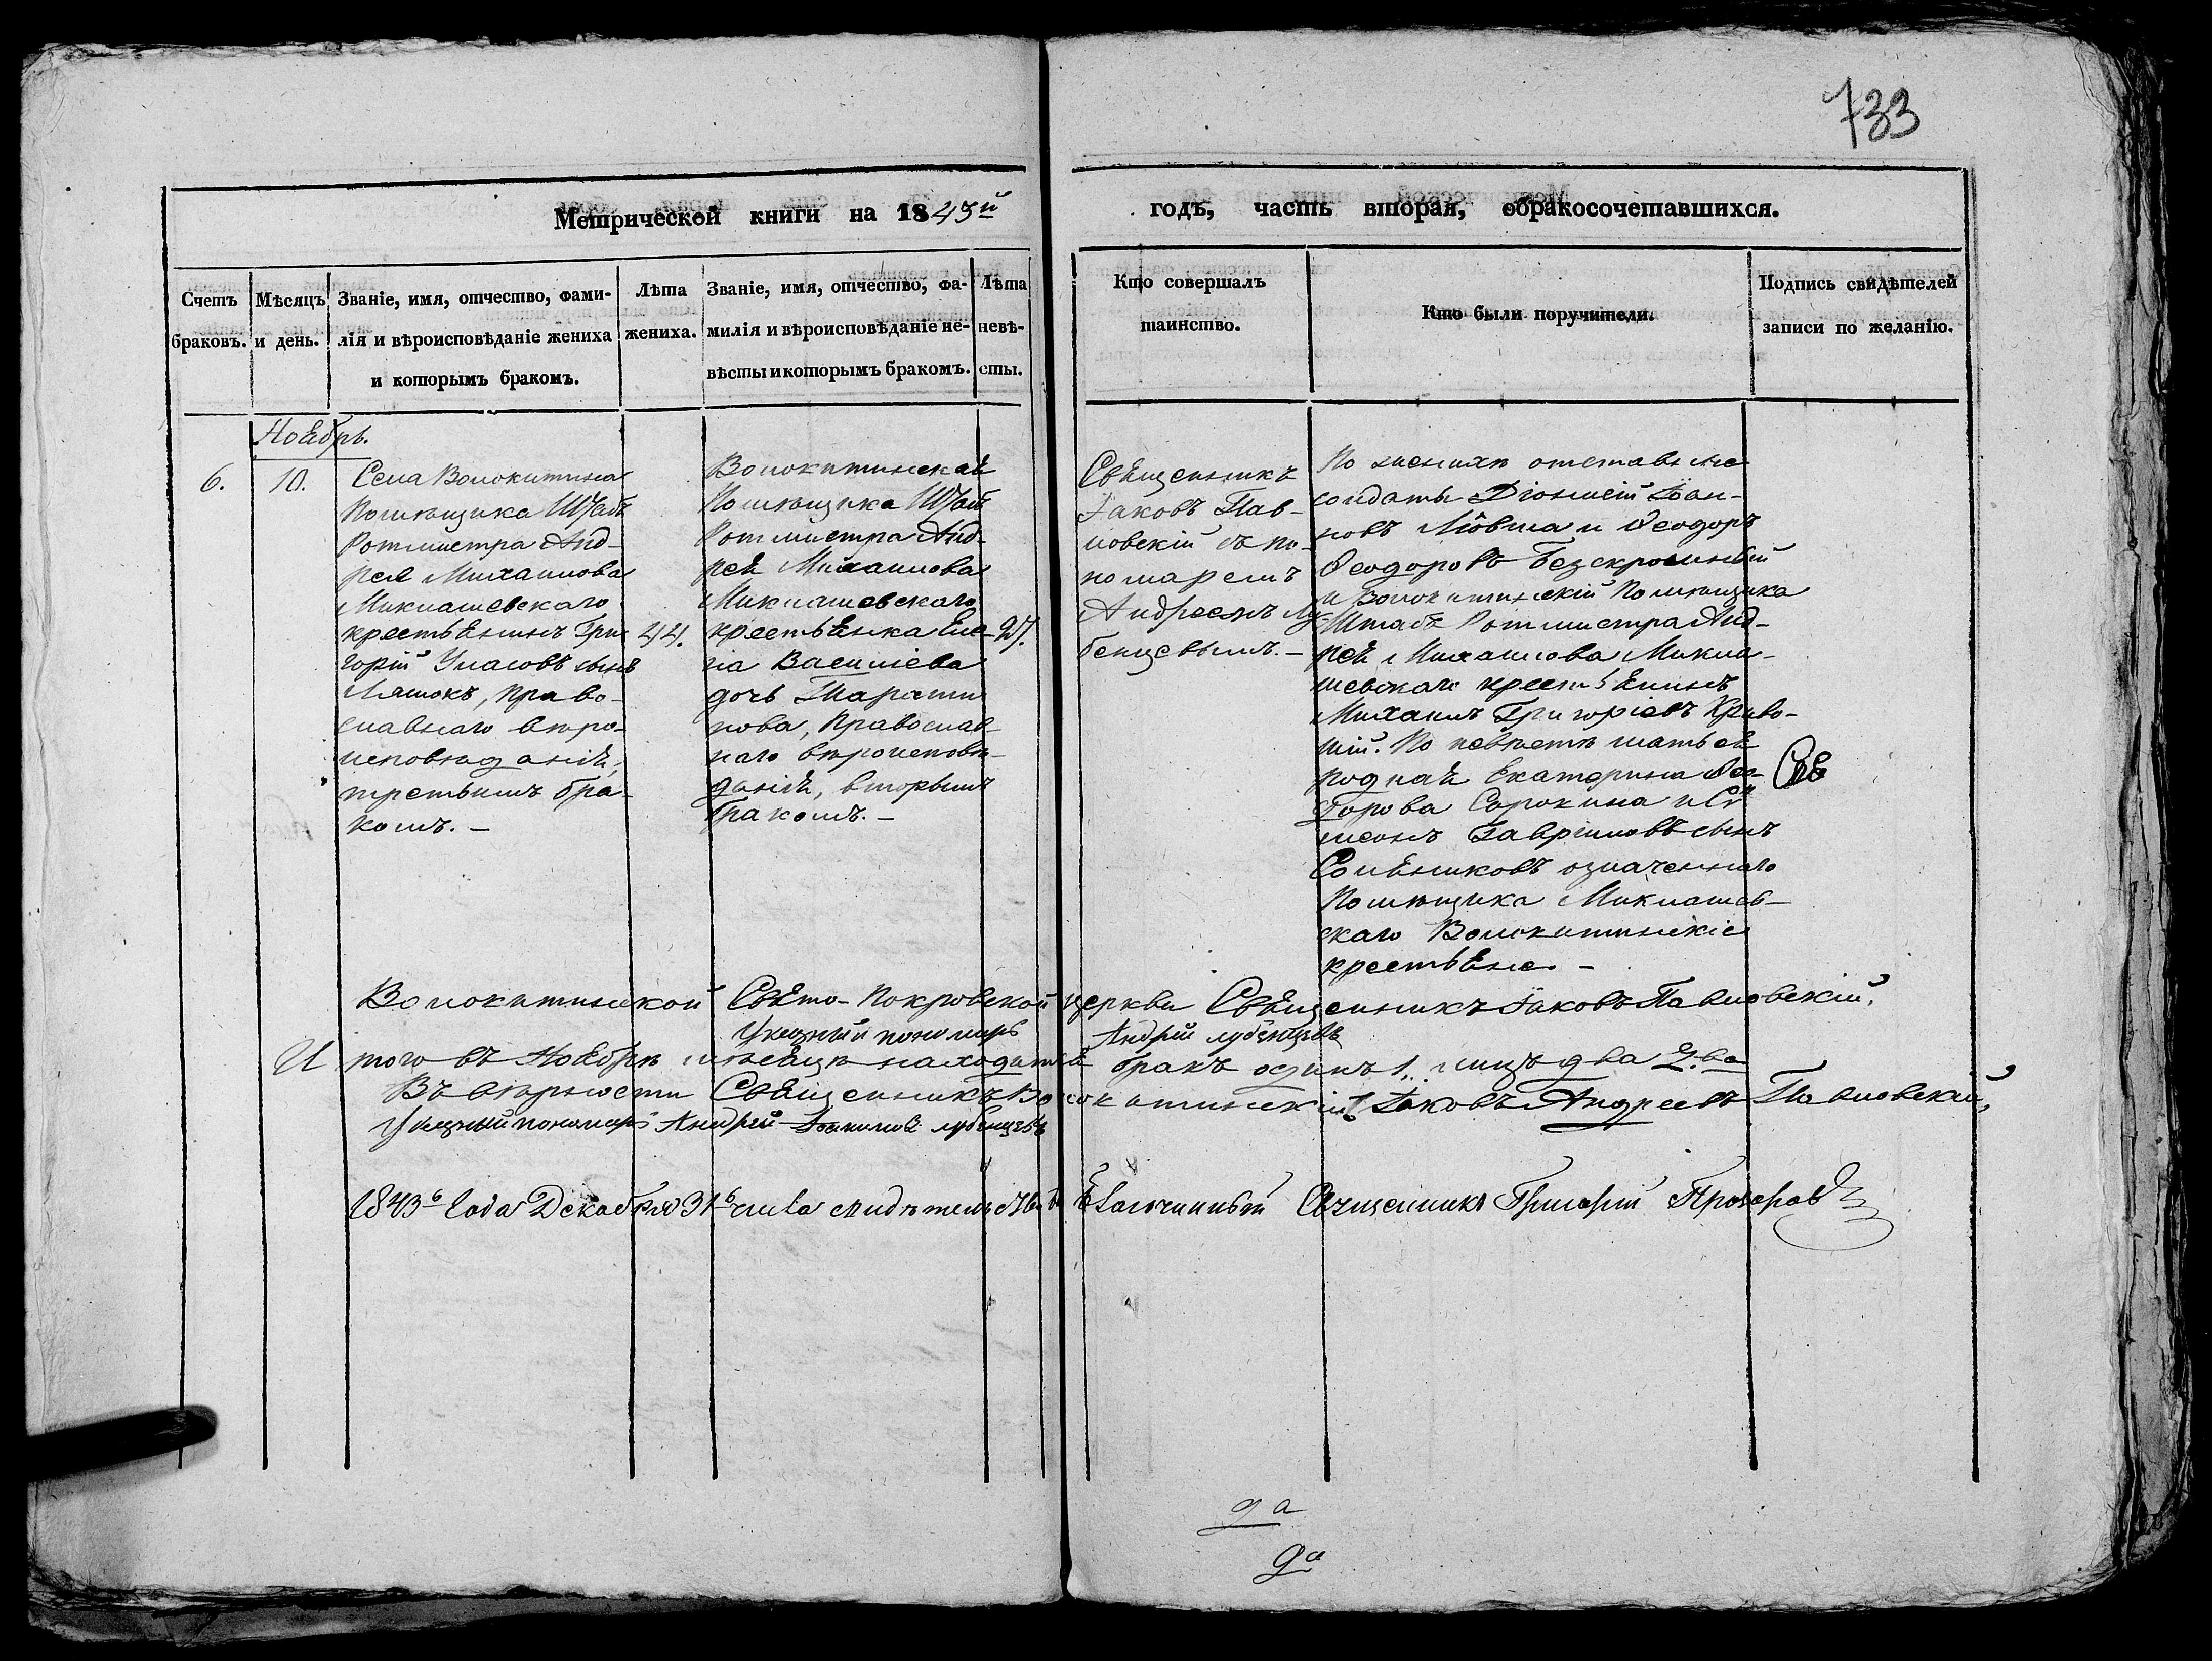 733
Метрической книги на 1843й годъ, часть вторая, обракосочетавшихся.
Счетъ браковъ.
Мѣсяцъ и день.
Званіе, имя, отчество, фами-
лія и вѣроисповѣданіе жениха
и которымъ бракомъ.
Лѣта
жениха.
Званіе, имя, отчество, фа-
милія и вѣроисповѣданіе не-
вѣсты и которымъ бракомъ.
Лѣта
невѣ-
сты.
Кто совершалъ
таинство.
Кто были поручители.
Подпись свидѣтелей
записи по желанію.
Ноябрь.
6.
10.
Села Волокитина
Помѣщика Штабъ
Ротмистра Анд-
рея Михаилова
Миклашевскаго
крестьянинъ Гри-
горій Уласовъ сынъ
Ляшокъ, право-
славнаго вѣро-
исповѣданія,
третьимъ бра-
комъ. –
44.
Волокитинскай
Помѣщика Штабъ
Ротмистра Анд-
рея Михаилова
Миклашевскаго
крестьянка Еле-
на Василіева
дочь
нова, Православ-
наго вѣроисповѣ-
данія, вторымъ
бракомъ. –
Священникъ
Іаковъ Пав-
ловскій съ по-
номаремъ
Андреемъ Лу-
бенцевымъ. –
По женихѣ отставные
солдаты Діонисій Іоан-
новъ и Феодоръ
Феодоровъ Безкровный
и Волокитинскій Помѣщика
Штабъ Ротмистра Анд-
рея Михаилова Микла-
шевскаго крестьянинъ
Михаилъ Григоріевъ Криво-
По невѣстѣ
Екатерина Фео-
дорова Сорокина и Си-
меонъ Гавріиловъ сынъ
означеннаго
Помѣщика Миклашев-
скаго Волокитинскіе
крестьяне. –
Волокитинской Свято-Покровской церкви Священникъ Іаковъ Павловскій,
Указный пономарь Андрей Лубенцевъ
И того въ Ноябрѣ мѣсяцѣ находится бракъ одинъ 1. лицъ два 2.ва
Въ вѣрности Священникъ Волокитинскій Іаковъ Андреевъ Павловскій,
Указный пономарь Андрей Лубенцевъ
1843го года Декабря 31го числа свидѣтельствовалъ Благочинный Священникъ Григорій Прохоровъ